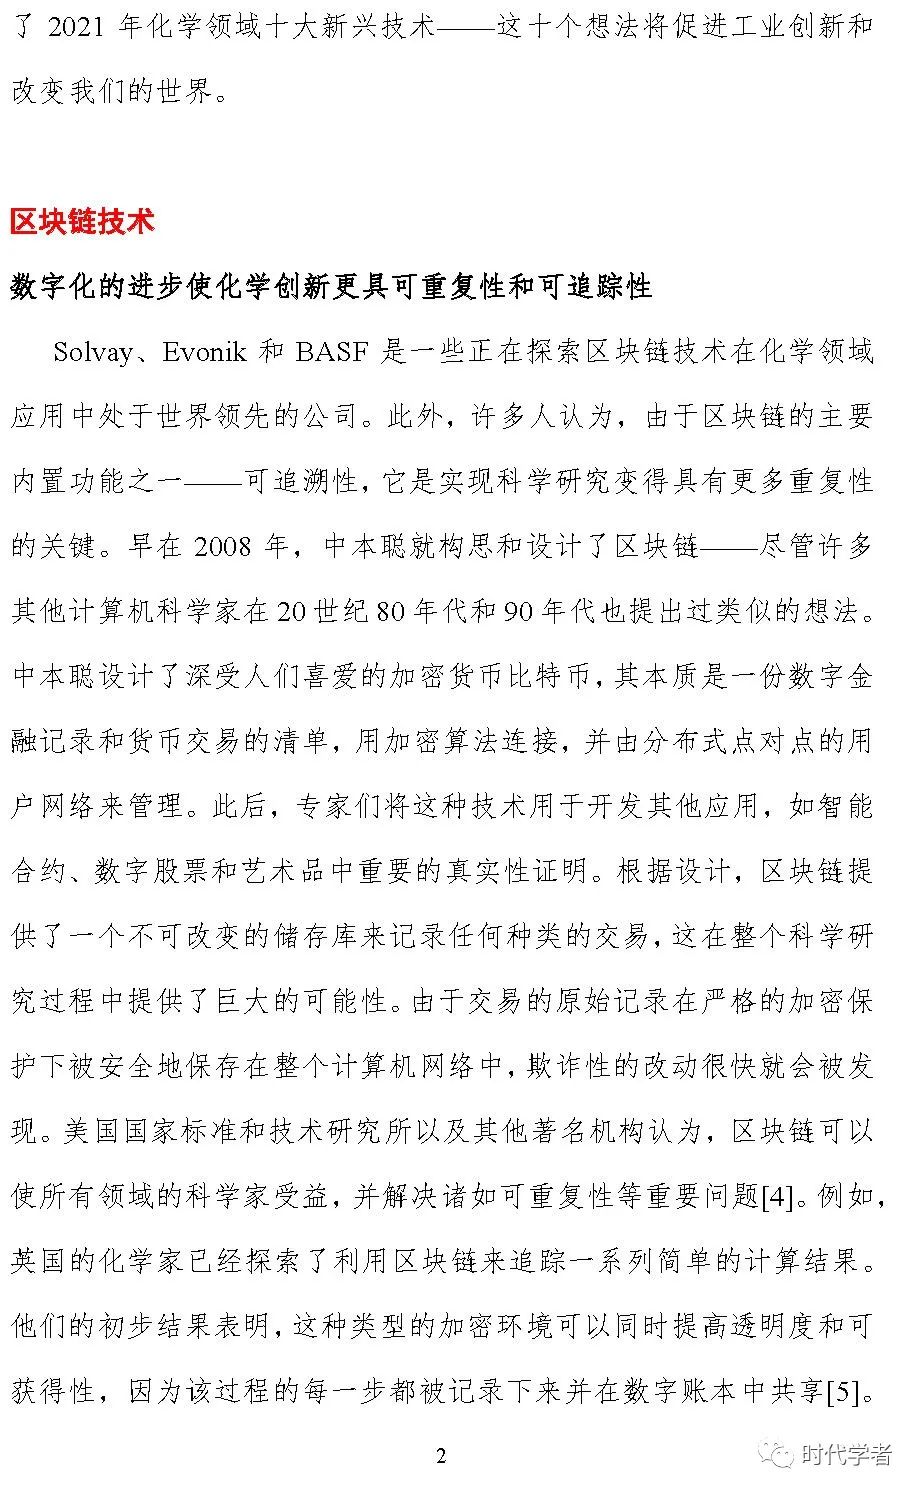 了 2021 年化学领域十大新兴技术——这十个想法将促进工业创新和
改变我们的世界。
区块链技术
数字化的进步使化学创新更具可重复性和可追踪性
Solvay、Evonik 和 BASF 是一些正在探索区块链技术在化学领域
应用中处于世界领先的公司。此外，许多人认为，由于区块链的主要
内置功能之一——可追溯性，它是实现科学研究变得具有更多重复性
的关键。早在 2008 年，中本聪就构思和设计了区块链——尽管许多
其他计算机科学家在 20 世纪 80 年代和 90 年代也提出过类似的想法。
中本聪设计了深受人们喜爱的加密货币比特币，其本质是一份数字金
融记录和货币交易的清单，用加密算法连接，并由分布式点对点的用
户网络来管理。此后，专家们将这种技术用于开发其他应用，如智能
合约、数字股票和艺术品中重要的真实性证明。根据设计，区块链提
供了一个不可改变的储存库来记录任何种类的交易，这在整个科学研
究过程中提供了巨大的可能性。由于交易的原始记录在严格的加密保
护下被安全地保存在整个计算机网络中，欺诈性的改动很快就会被发
现。美国国家标准和技术研究所以及其他著名机构认为，区块链可以
使所有领域的科学家受益，并解决诸如可重复性等重要问题[4]。例如，
英国的化学家已经探索了利用区块链来追踪一系列简单的计算结果。
他们的初步结果表明，这种类型的加密环境可以同时提高透明度和可
获得性，因为该过程的每一步都被记录下来并在数字账本中共享[5]。
2
时代学者